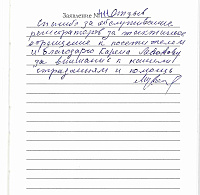 Заявление № Отзыв
Спасибо за обслуживание
регистратора за тактичное
обращение к посетителем
и благодарю Карина Левановну
за внимание к нашим
страданиям и помощь